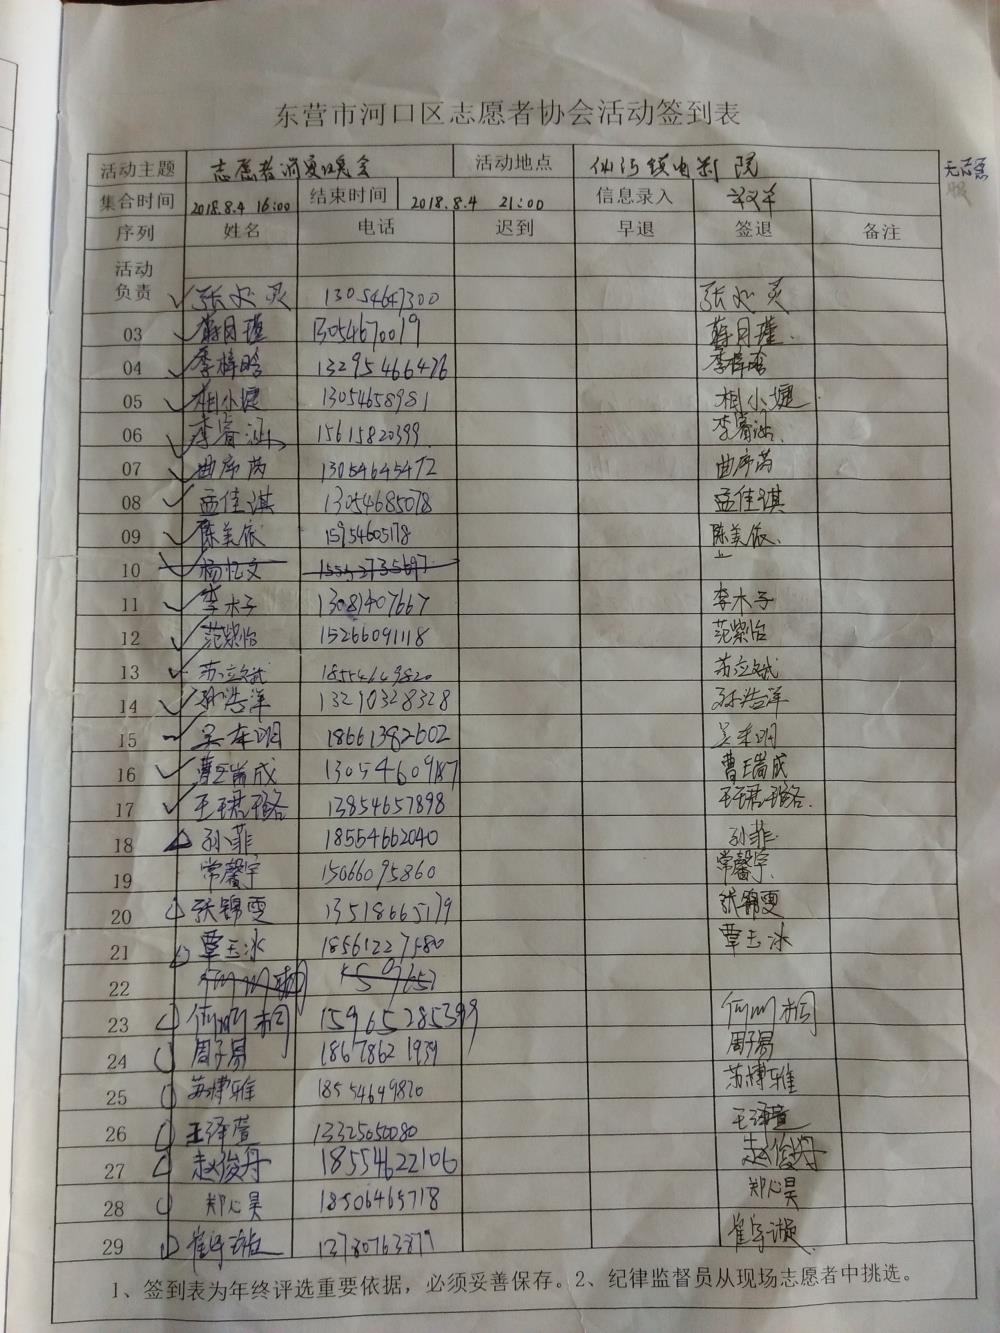 东营市河口区志愿者协会活动签到表
活动主题 志愿者消夏晚会 活动地点 仙河镇电影院
无志愿
集合时间 2018.8.4 16:00 结束时间 2018.8.4 21:00 信息录入
序列 姓名 电话 迟到 早退 签退 备注
活动
负责 13054647300
03 蒋月瑾 13054670019 蒋月瑾
04 李梓晗 13295466476 李梓晗
05 相小婕 13054658981 相小婕
06 李睿涵 15615820399 李睿涵
07 曲席芮 13054645472 曲席芮
08 孟佳淇 13054685078 孟佳淇
09 陈美依 15954605178 陈美依
10 杨忆文
11 李木子 13081407667 李木子
12 范紫怡 15266091118 范紫怡
13 苏立斌 18554649820 苏立斌
14 孙浩洋 13210328328 孙浩洋
15 18661382602
16 曹瑞成 13054609187 曹瑞成
17 王珺璐 13854657898 王珺璐
18 孙菲 18554662040 孙菲
19 常馨宇 15066095860 常馨宇
20 张锦雯 13518665179 张锦雯
21 覃玉冰 18561227580 覃玉冰
22
23 15965285399
24 周子易 18678621939 周子易
25 苏博雅 18554649820 苏博雅
26 王泽萱 13325050080 王泽萱
27 赵俊丹 18554622106 赵俊丹
28 郑心昊 18506465718 郑心昊
29 13780763877
1、签到表为年终评选重要依据，必须妥善保存。2、纪律监督员从现场志愿者中挑选。